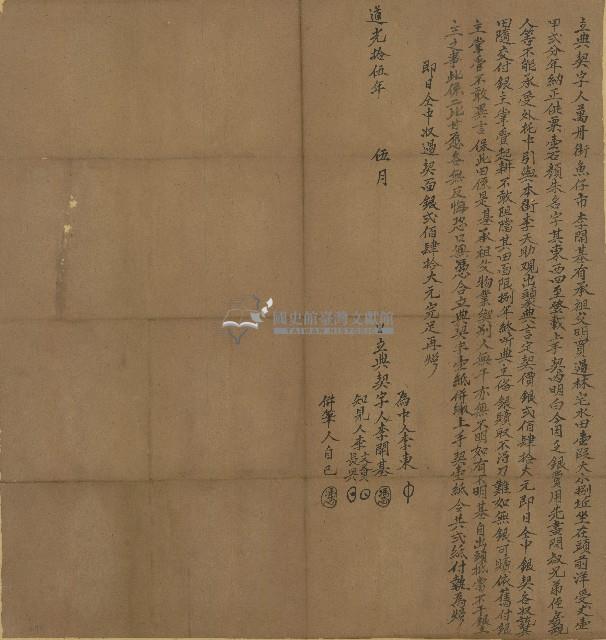 立典契字人萬丹街魚仔市李開基有承祖父明買過林宅水田壹段大小捌坵坐在頭前洋受丈壹
甲弍分年納正供粟壹石額朱名字其東西四至登載上手契內明白今因乏銀費用先盡問叔兄弟侄
人等不能承受外托中引與本街李天助觀出頭承典三面言定契價銀弍佰肆拾大元即日仝中銀契各收訖其
田隨交付銀主掌管起耕不敢阻擋其田面限捌年終听典主俻銀贖取不得刁難如無銀可贖依舊付銀
主掌管不敢異言保此田係是基承祖父物業與別人無干亦無不明如有不明基自出頭抵當不干銀
主之事此係二比甘愿各無反悔恐口無憑合立典契字壹紙併繳上手契壹紙合共弍紙付執為炤
即日仝中收過契面銀弍佰肆拾大元完足再炤
為中人李東
知見人李文貴
長興
立典契字人李開基
併筆人自己
道光拾伍年 伍月
國史館臺灣文獻館
TAIWAN HISTORICA